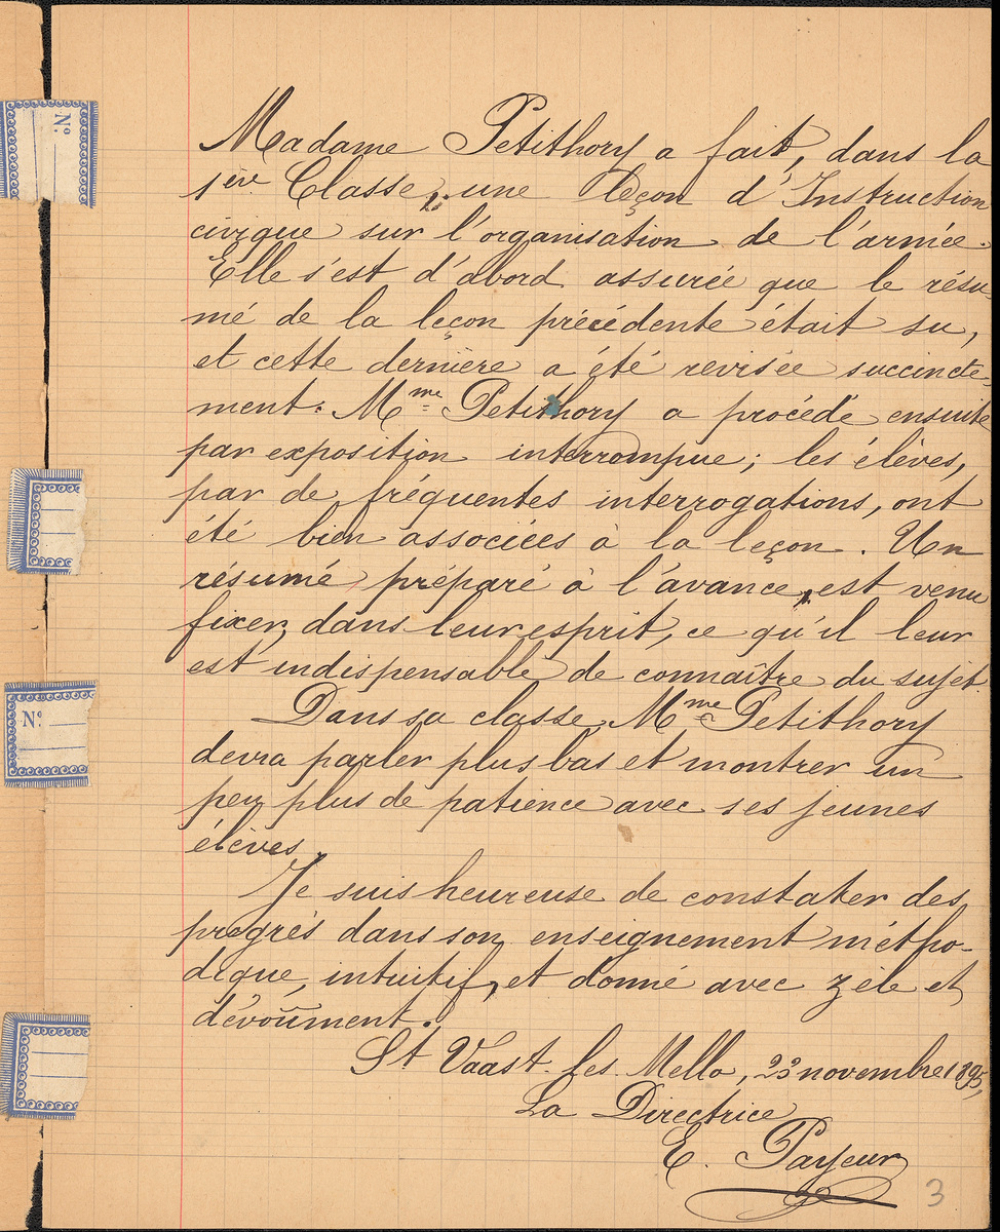 Nº
Madame Petithory a fait, dans la
1ère Classe, une leçon d'Instruction
civique sur l'organisation de l'armée.
Elle s'est d'abord assurée que le résu-
mé de la leçon précédente était su,
et cette dernière a été revisée succincte-
ment. Mme Petithory a procédé ensuite
par exposition interrompue ; les élèves,
par de fréquentes interrogations, ont
été bien associées à la leçon. Un
résumé préparé à l'avance, est venu
fixer, dans leur esprit, ce qu'il leur
est indispensable de connaître du sujet.
Nº
Dans sa classe, Mme Petithory
devra parler plus bas et montrer un
peu plus de patience avec ses jeunes
élèves.
Je suis heureuse de constater des
progrès dans son enseignement métho-
dique, intuitif, et donné avec zèle et
dévoûment.
St Vaast les Mello, novembre 1895,
La Directrice
E. Payeur
3